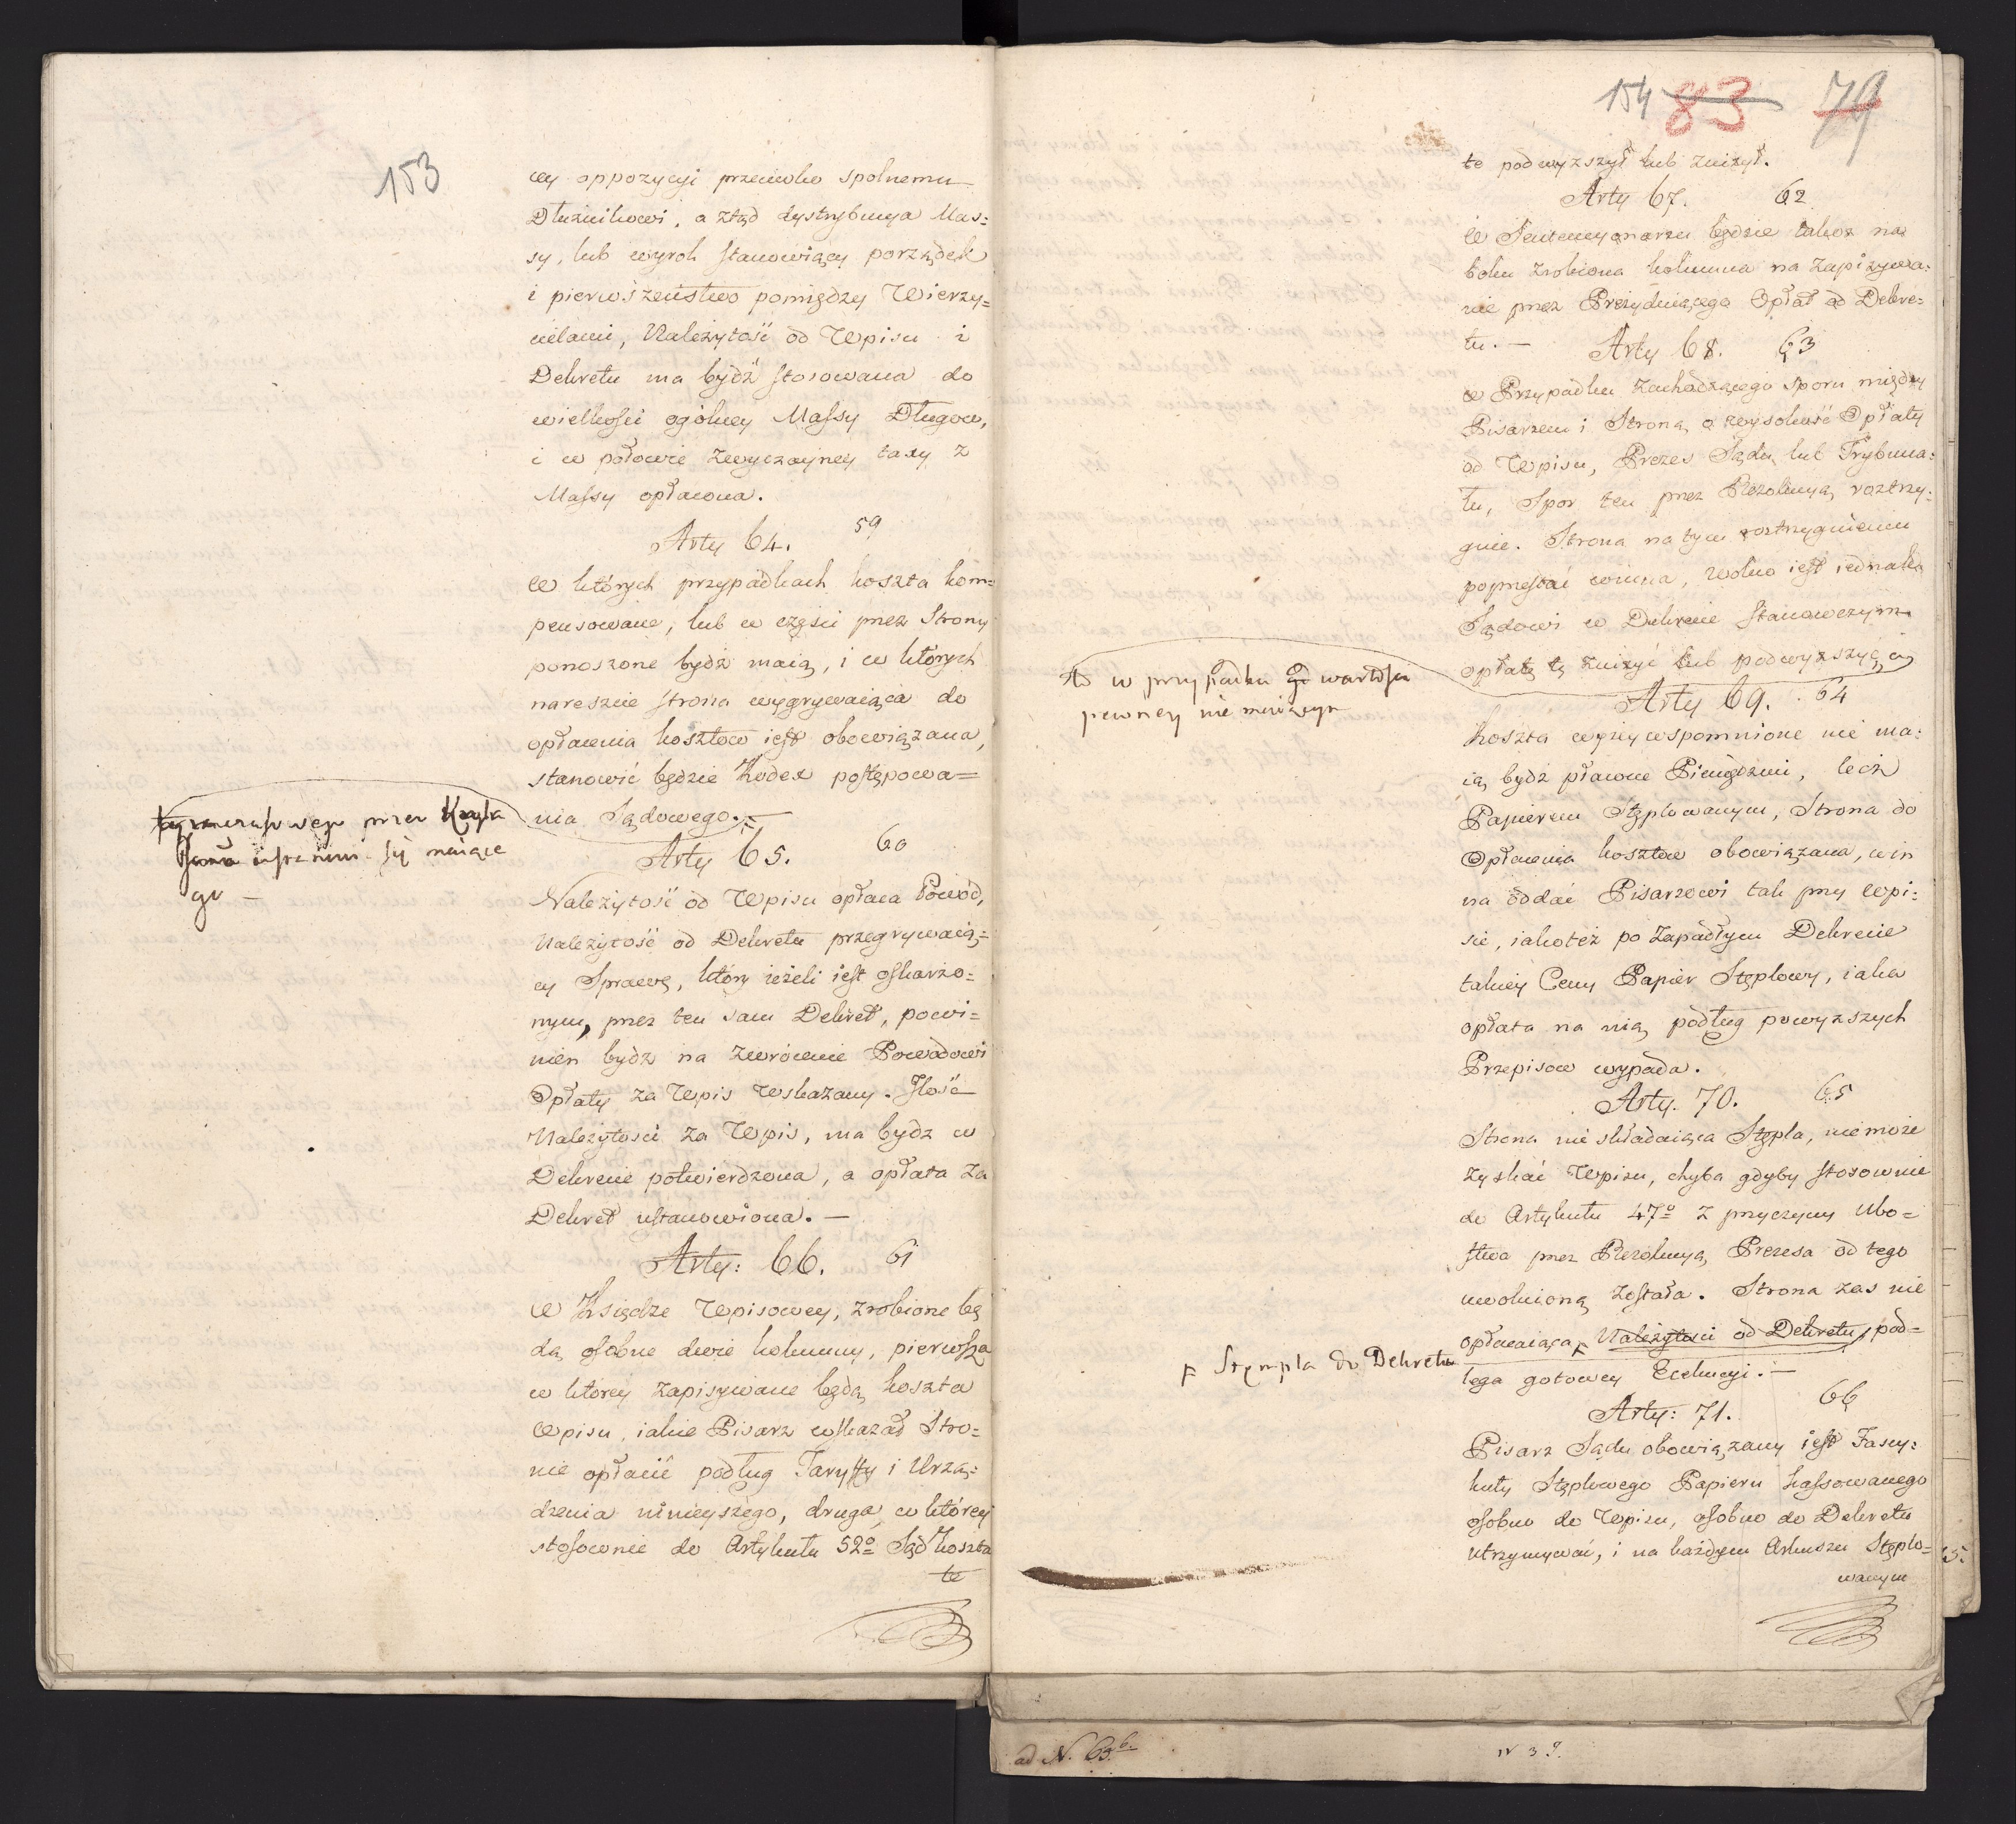 153
cey oppozycyi przeciwko spolnemu
Dłużnikowi, a ztąd dystrybucya Mas=
sy, lub wyrok stanowiący porządek
i pierwszeństwo pomiędzy Wierzy=
cielami, Należytość od Wpisu i
Dekretu ma bydź stosowana do
wielkości ogólney Massy Długow,
i w połowie zwyczayney taxy z
Massy opłacona.
Arty 64. 59
W których przypadkach koszta kom=
pensowane, lub w części przez Strony
ponoszone bydź maią, i w których
nareszcie strona wygrywaiąca do
opłacenia kosztow iest obowiązana,
stanowić będzie Kodex postępowa=
nia Sądowego.
przez
się maiące
go —
Arty 65. 60
Należytość od Wpisu opłaca Powód,
Należytość od Dekretu przegrywaią=
cy Sprawę, który ieżeli iest oskarżo=
nym, przez ten sam Dekret, powi=
nien bydź na zwrócenie Powodowi
Opłaty za Wpis wskazany. Ilość
Należytości za Wpis, ma bydz w
Dekrecie potwierdzona, a opłata za
Dekret ustanowiona. —
Arty: 66. 61
W Księdze Wpisowey, zrobione bę
dą osobne dwie kolumny, pierwsza
w którey zapisywane będą koszta
Wpisu, iakie Pisarz wskazał Stro=
nie opłacić podług Taryffy i Urzą=
dzenia ninieyszego, druga w którey
stosownie do Artykułu 52º Sąd koszta
te
154 83 79
te podwyzszył lub zniżył.
Arty 67. 62
W Sentencyonarzu będzie także na
boku zrobiona kolumna na zapisywa=
nie przez Prezyduiącego Opłat od Dekre=
tu. —
Arty 68. 63
w Przypadku zachodzącego sporu między
Pisarzem i Stroną o wysokość Opłaty
od Wpisu, Prezes Sądu lub Trybuna=
łu, Spor ten przez Rezolucyą roztrzy=
gnie. Strona na tym roztrzygnieniu
poprzestać winna, wolno iest iednak
Sądowi w Dekrecie Stanowczym
opłatę tę zniżyć lub podwyższyć
to w przypadku wartości
pewney nie maiącym
Arty 69. 64
Koszta wyżey wspomnione nie ma=
ią bydź płacone Pieniędzmi, lecz
Papierem Stęplowanym, Strona do
Opłacenia kosztow obowiązana, win
na oddać Pisarzowi tak przy Wpi=
sie, iakoteż po zapadłym Dekrecie
takiey Ceny Papier Stęplowy, iaka
opłata na nią podług powyzszych
Przepisow wypada.
Arty. 70. 65
Strona nie składaiąca Stępla, nie może
zyskać Wpisu, chyba gdyby stosownie
do Artykułu 47º z przyczyny Ubo=
stwa przez Rezolucyą Prezesa od tego
uwolnioną została. Strona zas nie
opłacaiąca Należytości od Dekretu, pod=
F Stempla do Dekretu
lega gotowey Exekucyi. —
Arty: 71. 66
Pisarz Sądu obowiązany iest Fascy=
kuły Stęplowego Papieru kassowanego
osobno do Wpisu, osobno do Dekretu
utrzymywać, i na każdym Arkuszu Stęplo=
wanym
ad N. 63
N 39.